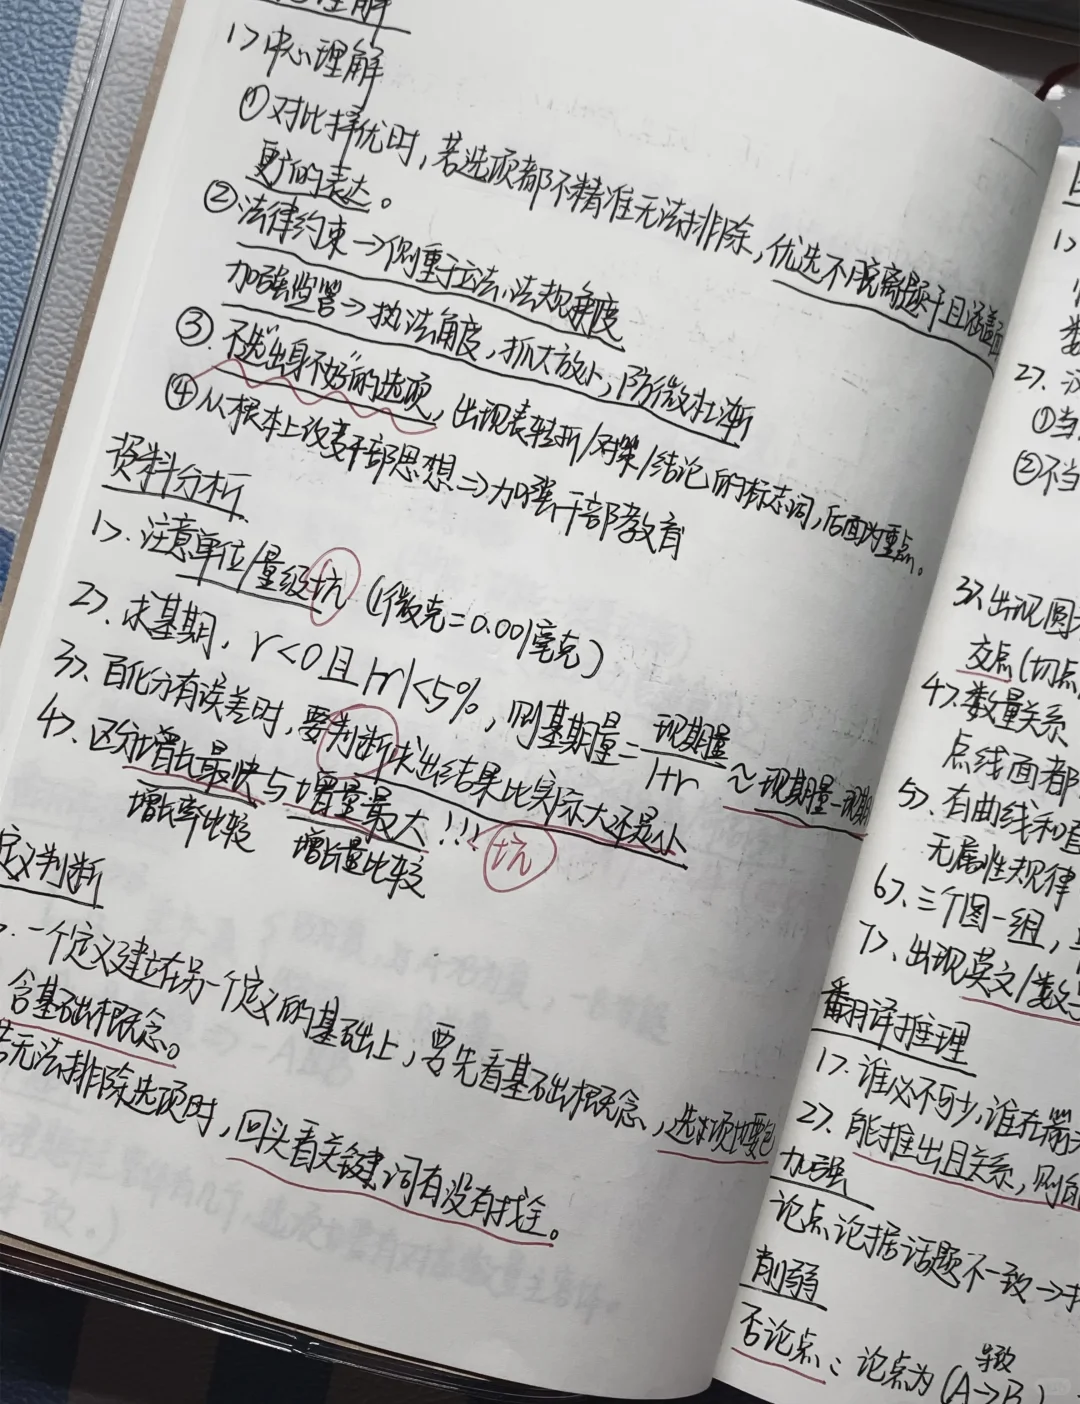 理解
1> 中心理解
① 对比择优时，若选项都不精准无法排除，优选不脱离题干且涵盖面
更广的表达。
② 法律约束→侧重于立法、法规角度
加强监管→执法角度，抓大放小，防微杜渐
③. 不选"出身不好"的选项，出现表转折/对策/结论的标志词，后面为重点。
④ 从根本上改变干部思想⇒加强干部教育
资料分析
1>. 注意单位/量级坑（1微克=0.001毫克）
2>. 求基期，r<0且|r|<5%，则基期量=现期量/1+r≈现期量-现期
3>. 百化分有误差时，要判断求出结果比实际大还是小
4>. 区分增长最快与增量最大!!! 坑
增长率比较 增长量比较
定义判断
. 一个定义建立在另一个定义的基础上，要先看基础概念，选项也要包
含基础概念。
若无法排除选项时，回头看关键词有没有找全。
1>
2>.
①当
②不当
3>.出现圆
交点(切点
4>.数量关系
点线面都
5>.有曲线和直
无属性规律
6>.三个图一组，
7>.出现英文/数字
翻译推理
1>.谁必不可少，谁在箭头
2>.能推出且关系，则
加强
论点论据话题不一致→
削弱
否论点：论点为(A→B)
导致